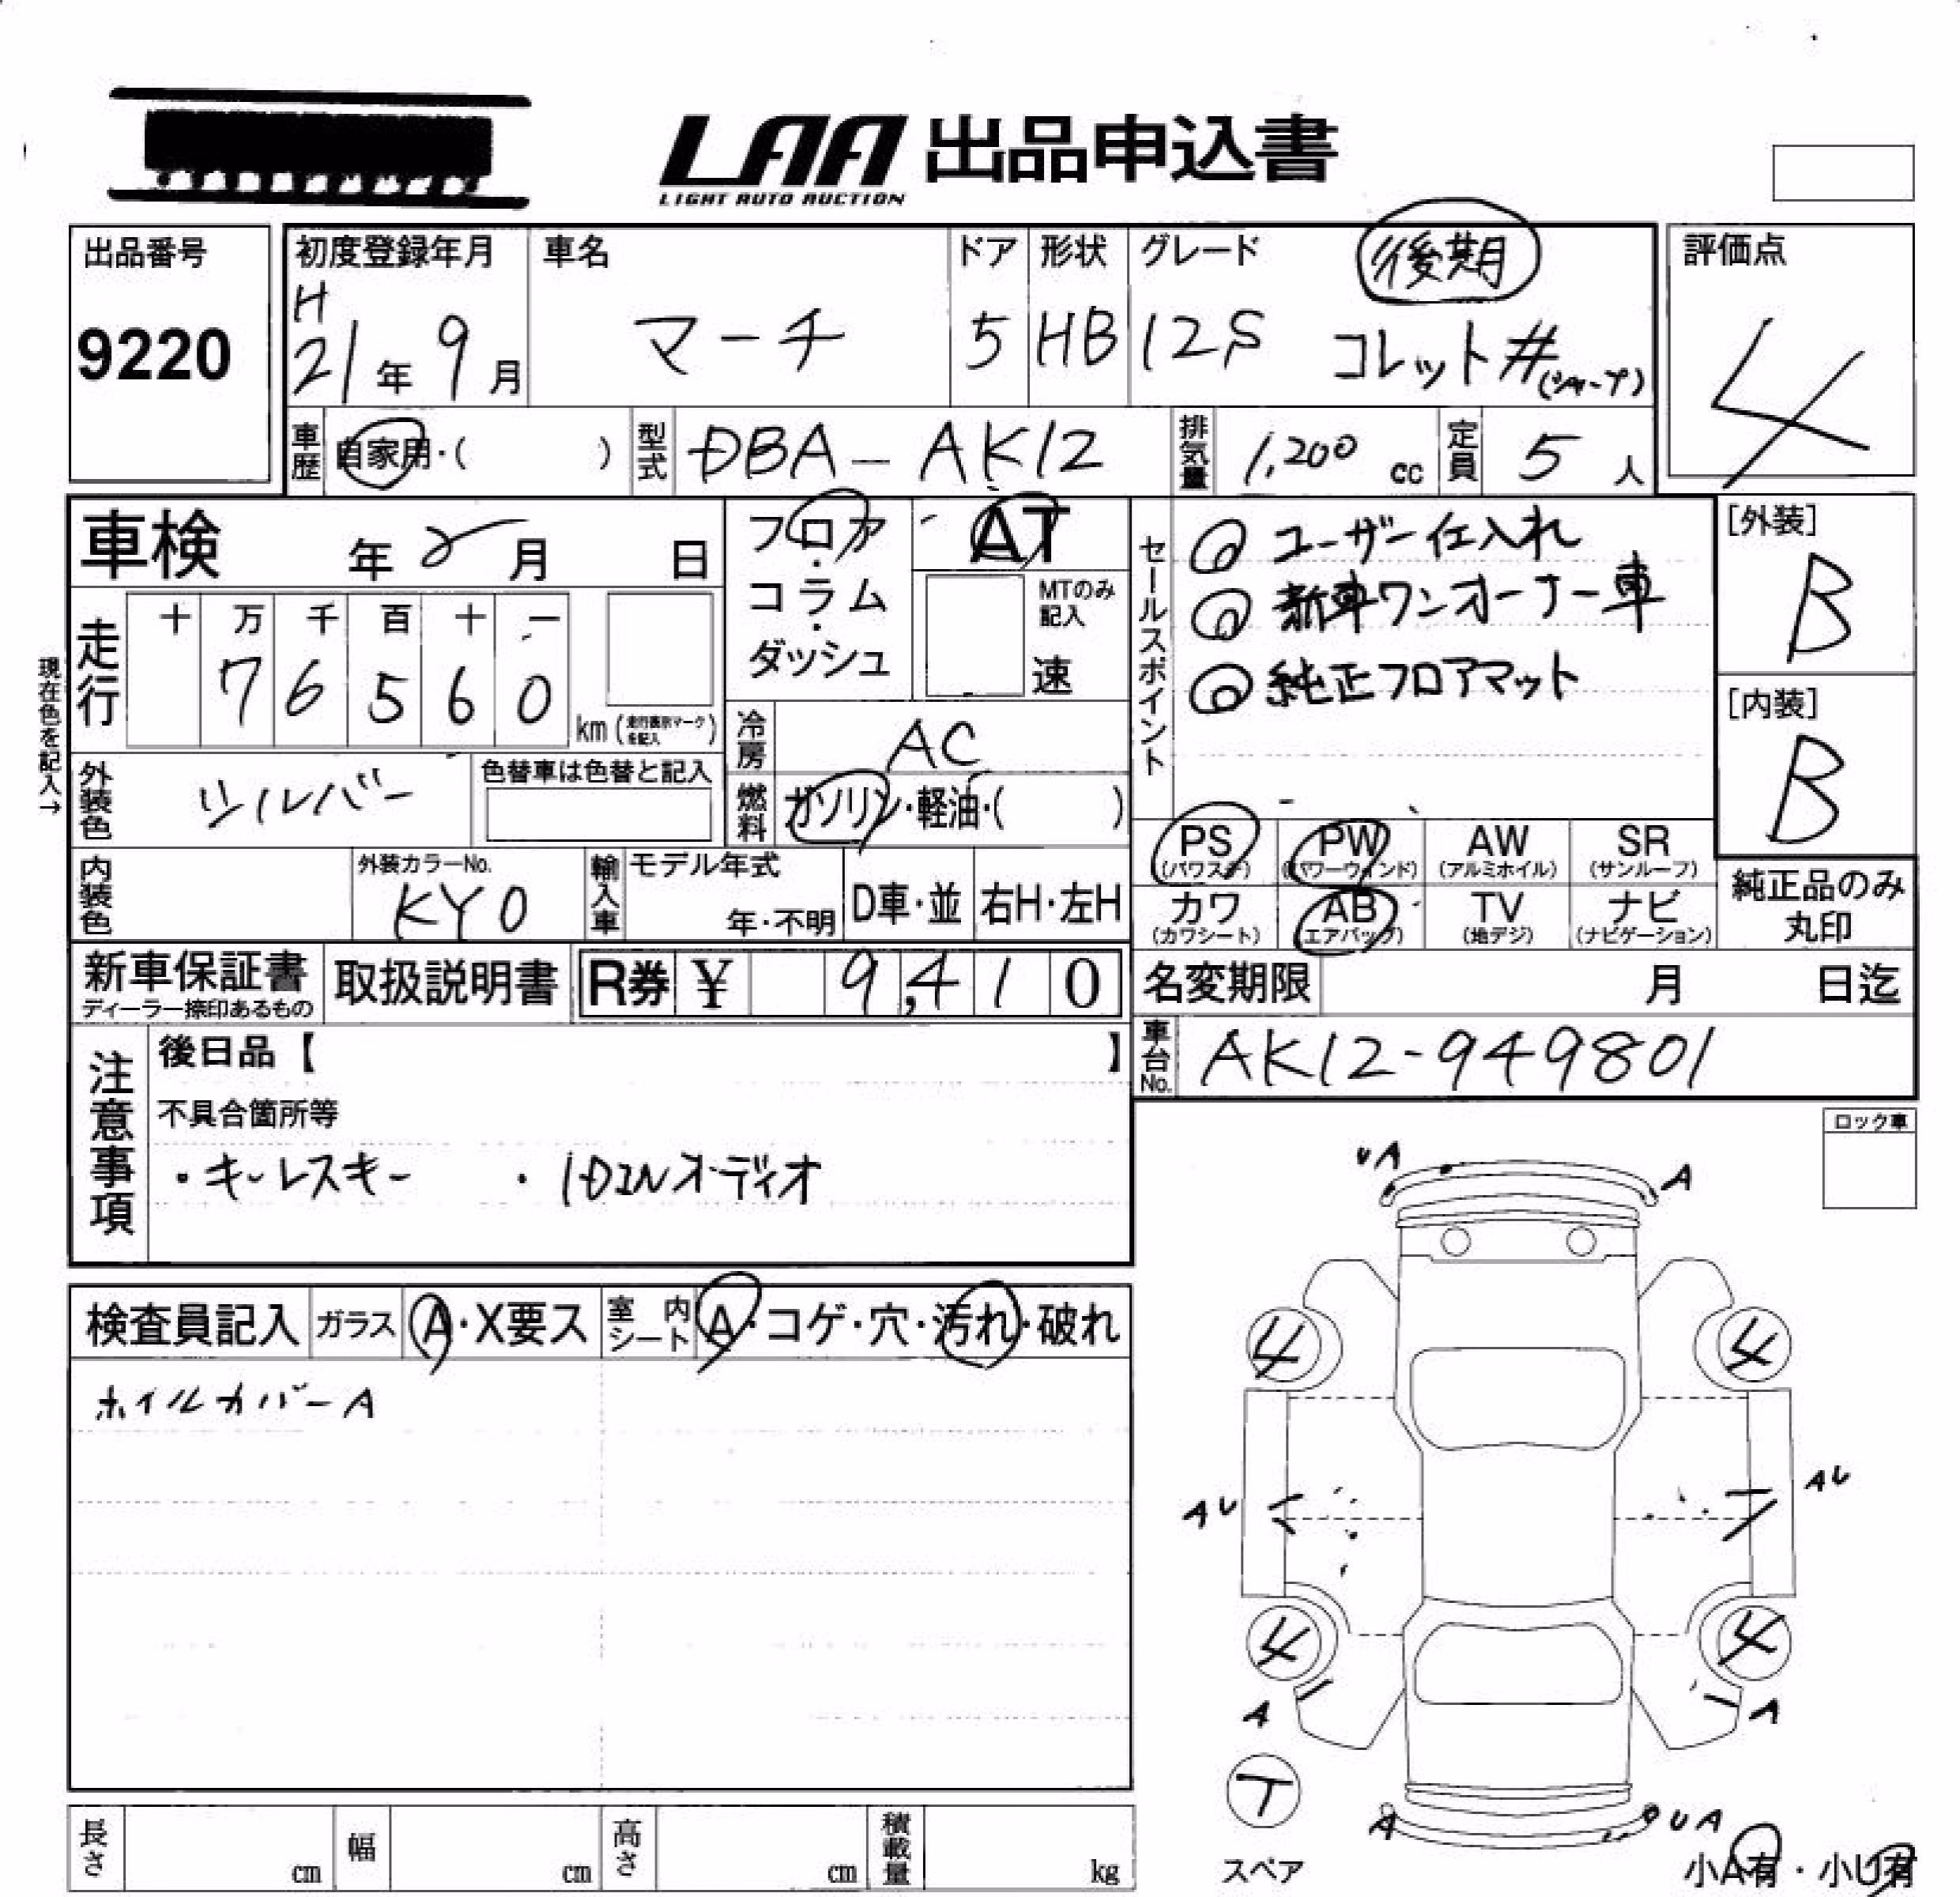 LAA 出品申込書
LIGHT AUTO AUCTION
出品番号
9220
初度登録年月
H
21年 9月
車名
マーチ
ドア
5
形状
HB
グレード
後期
12S コレット#(シャープ)
評価点
4
車歴 自家用・( )
型式 DBA-AK12
排気量 1,200 cc
定員 5 人
車検 年 月 日
フロア・コラム・ダッシュ
AT
MTのみ記入
速
走行
十 万 千 百 十 一
7 6 5 6 0
km(走行表示マークを記入)
現在色を記入→
外装色 シルバー
色替車は色替と記入
冷房 AC
燃料 ガソリン・軽油・( )
内装色
外装カラーNo.
KY0
輸入車
モデル年式
年・不明
D車・並
右H・左H
セールスポイント
◎ ユーザー仕入れ
◎ 新車ワンオーナー車
◎ 純正フロアマット
[外装]
B
[内装]
B
PS (パワステ)
PW (パワーウインド)
AW (アルミホイル)
SR (サンルーフ)
カワ (カワシート)
AB (エアバッグ)
TV (地デジ)
ナビ (ナビゲーション)
純正品のみ丸印
新車保証書
ディーラー捺印あるもの
取扱説明書
R券 ¥ 9,410
名変期限 月 日迄
車台No. AK12-949801
注意事項
後日品【 】
不具合箇所等
・キーレスキー ・1DINオーディオ
ロック車
検査員記入
ガラス A・X要ス
室内シート A・コゲ・穴・汚れ・破れ
ホイルカバーA
UA
A
4
4
AU
AU
4
4
A
A
T
スペア
A
UA
小A有・小U有
長さ cm
幅 cm
高さ cm
積載量 kg